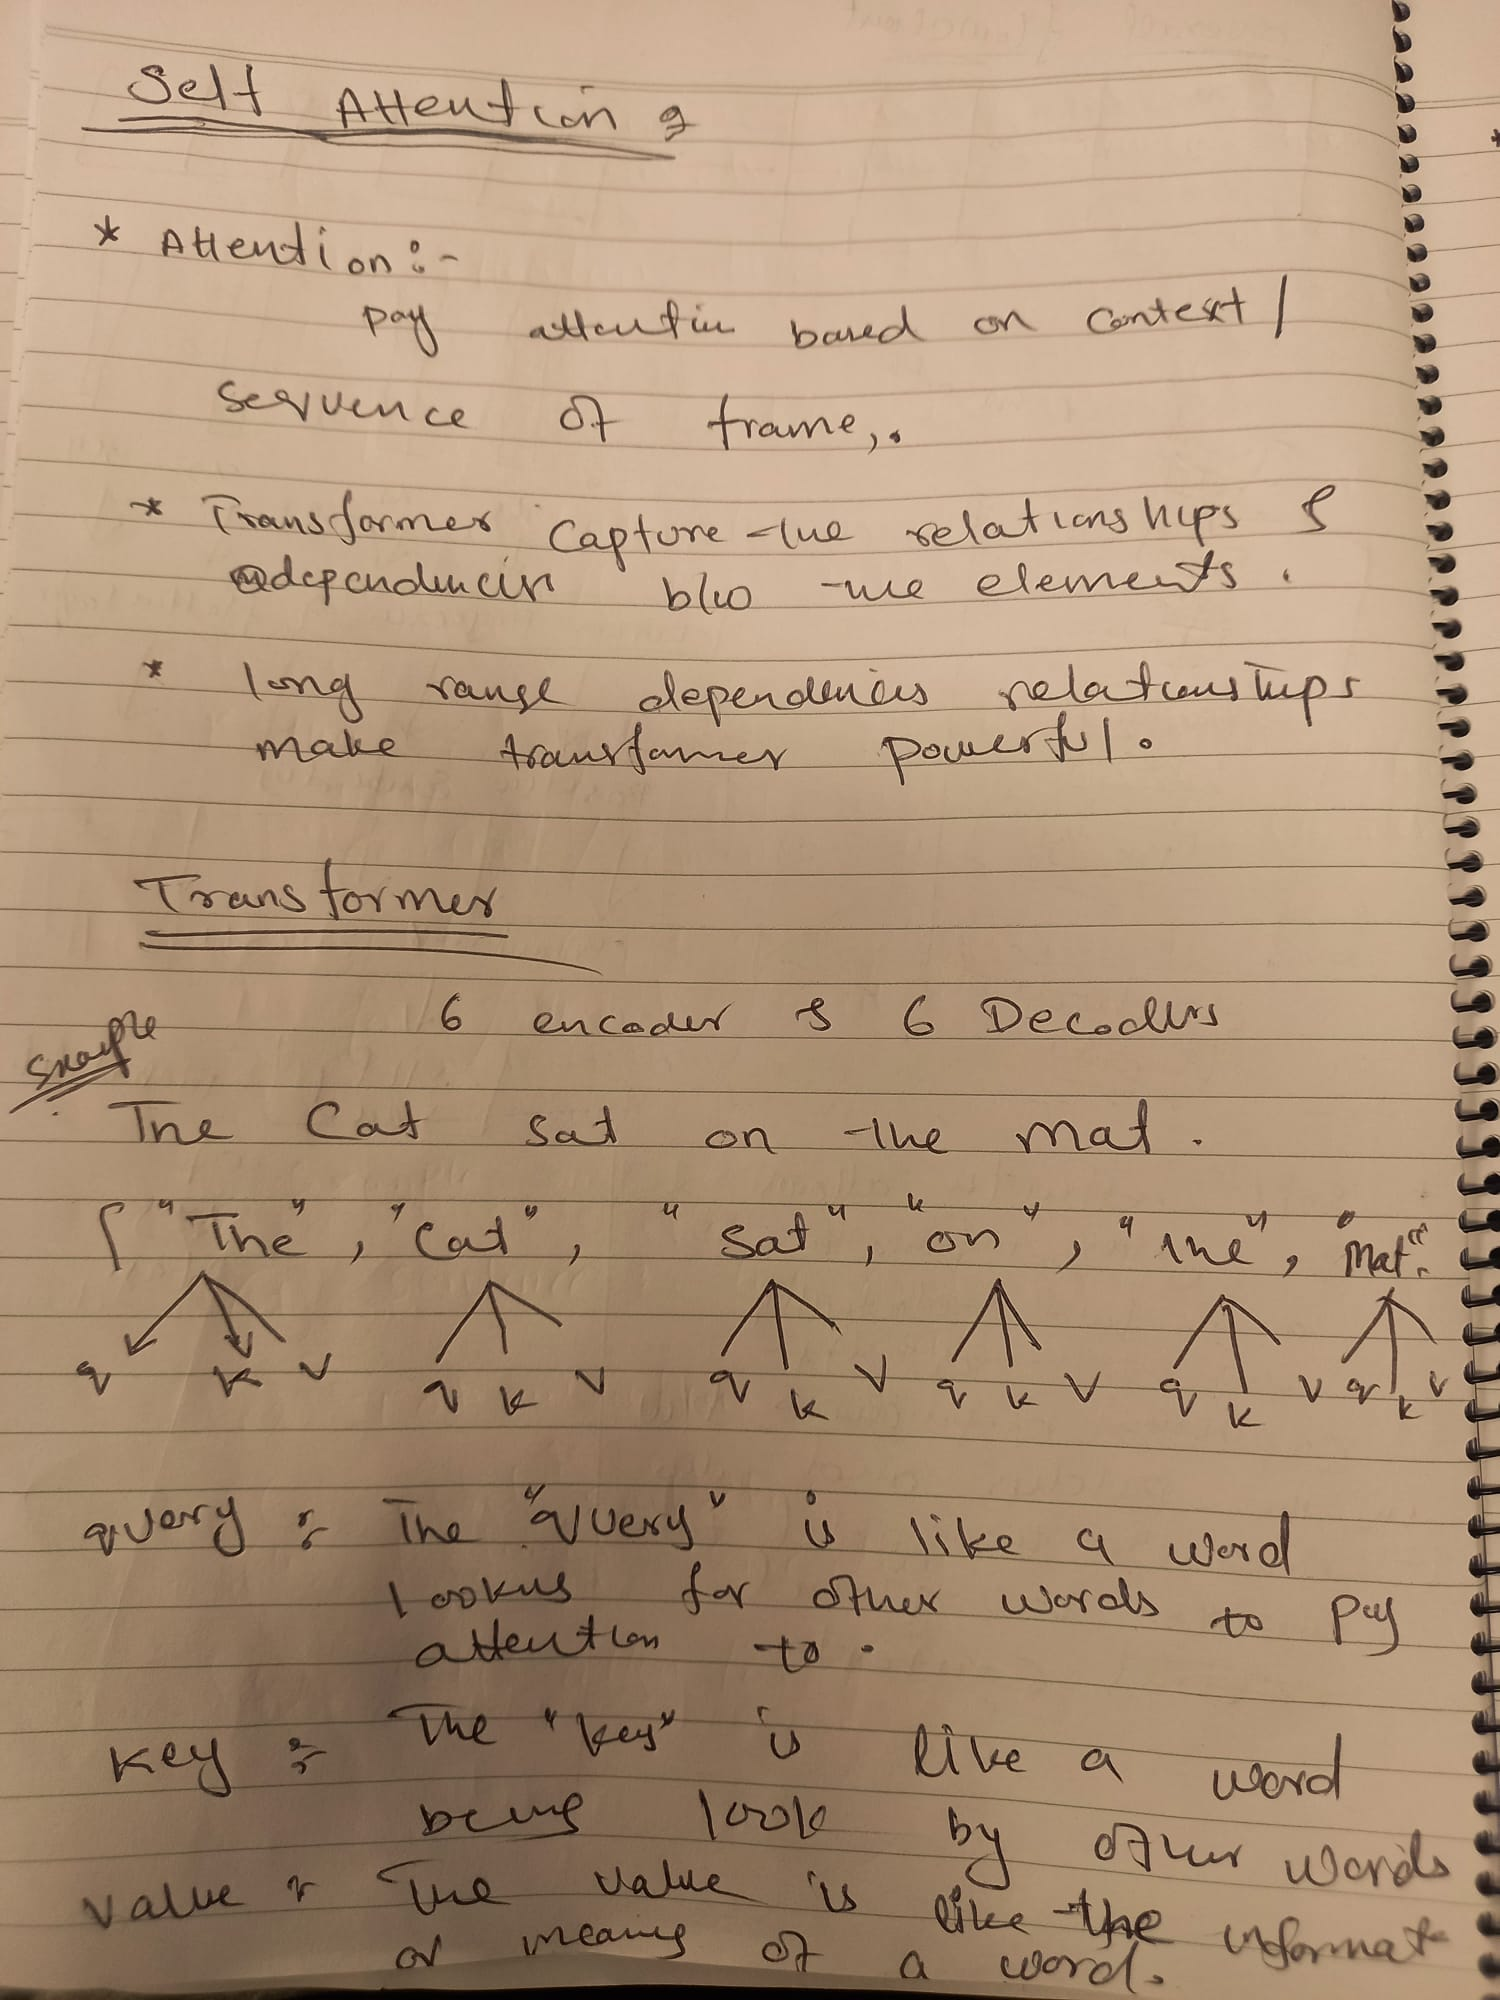 Self Attention :
* Attention :-
pay attention based on context /
sequence of frame,.
* Transformer Capture the relationships &
dependencies b/w the elements.
* long range dependencies relationships
make transformer powerful.
Transformer
6 encoder & 6 Decoders
Example
The Cat sat on the mat.
[ "The", "Cat", "Sat", "on", "the", "Mat".
q k v q k v q k v q k v q k v q k v
query :- The "query" is like a word
looking for other words to pay
attention to.
key :- The "key" is like a word
being look by other words
value :- The value is like the informat
or meaning of a word.